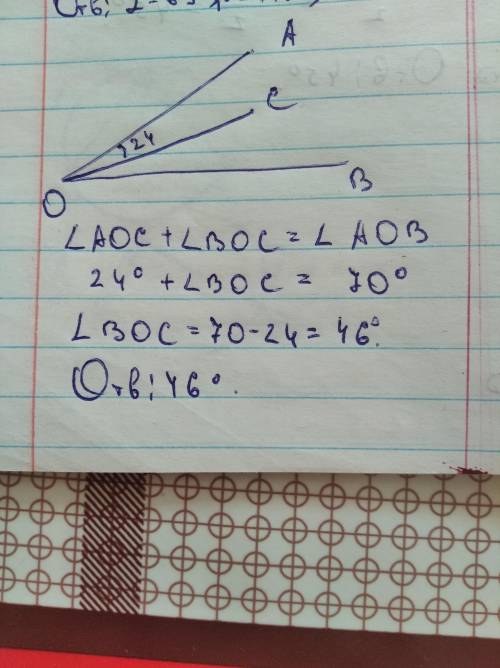 A
C
24
O
B
∠AOC + ∠BOC = ∠AOB
24° + ∠BOC = 70°
∠BOC = 70 - 24 = 46°.
Отв: 46°.